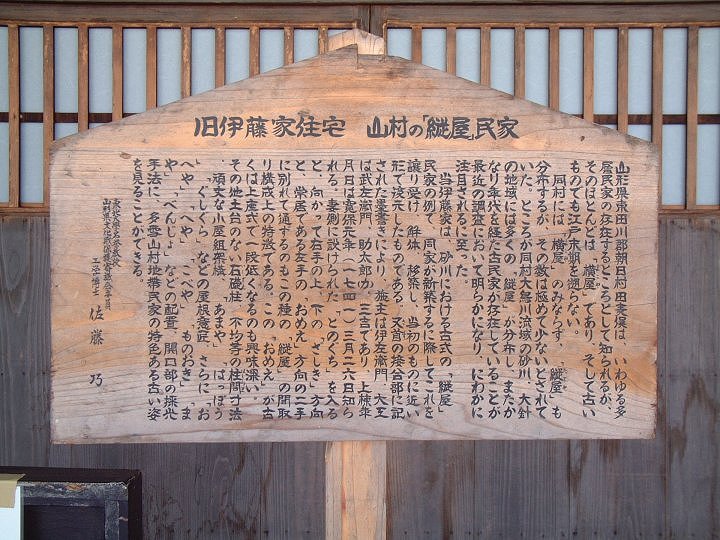 旧伊藤家住宅　山村の「縦屋」民家
山形県東田川郡朝日村田麦俣は、いわゆる多
層民家の存在するところとして知られるが、
そのほとんどは、「横屋」であり、そして古い
ものでも江戸末期を遡らない。
同村には、「横屋」のみならず、「縦屋」も
分布するが、その数は極めて少ないとされて
いた。ところが同村大鳥川流域の砂川、大針
の地域には多くの「縦屋」が分布し、またか
なり年代を経た古民家が存在していることが
最近の調査において明らかになり、にわかに
注目されるに至った。
当伊藤家は、砂川における古式の「縦屋」
民家の例で、同家が新築するに際してこれを
譲り受け、解体、移築し、当初のものに近い
形で復元したものである。叉首の接合部に記
された墨書きにより、施主は伊左衛門、大工
は武左衛門、助太郎か。三吉であり、上棟年
月日は寛保元年（一七四一）三月二六日と知ら
れる。妻側に設けられた「とのぐち」を入る
と、向かって右手の上、下の「ざしき」方向
と、常居である左手の「おめえ」方向の二手
に別れて通ずるのもこの種の「縦屋」の間取
り構成上の特徴である。この「おめえ」が古
くは上座式で一段低くなるのも興味深い。
その他土台のない石礎柱、不均等の柱間寸法
、頑丈な小屋組架構、「あまや」、「はっぽう
」、「ぐしぐら」などの屋根意匠、さらに「お
へや」、「へや」、「こべや」、「ものおき」、「ま
や」、「べんじょ」などの配置、開口部の採光
手法に、多雪山村地帯民家の特色ある古い姿
を見ることができる。
東北大学名誉教授
山形県文化財保護審議会委員
工学博士　佐藤　巧